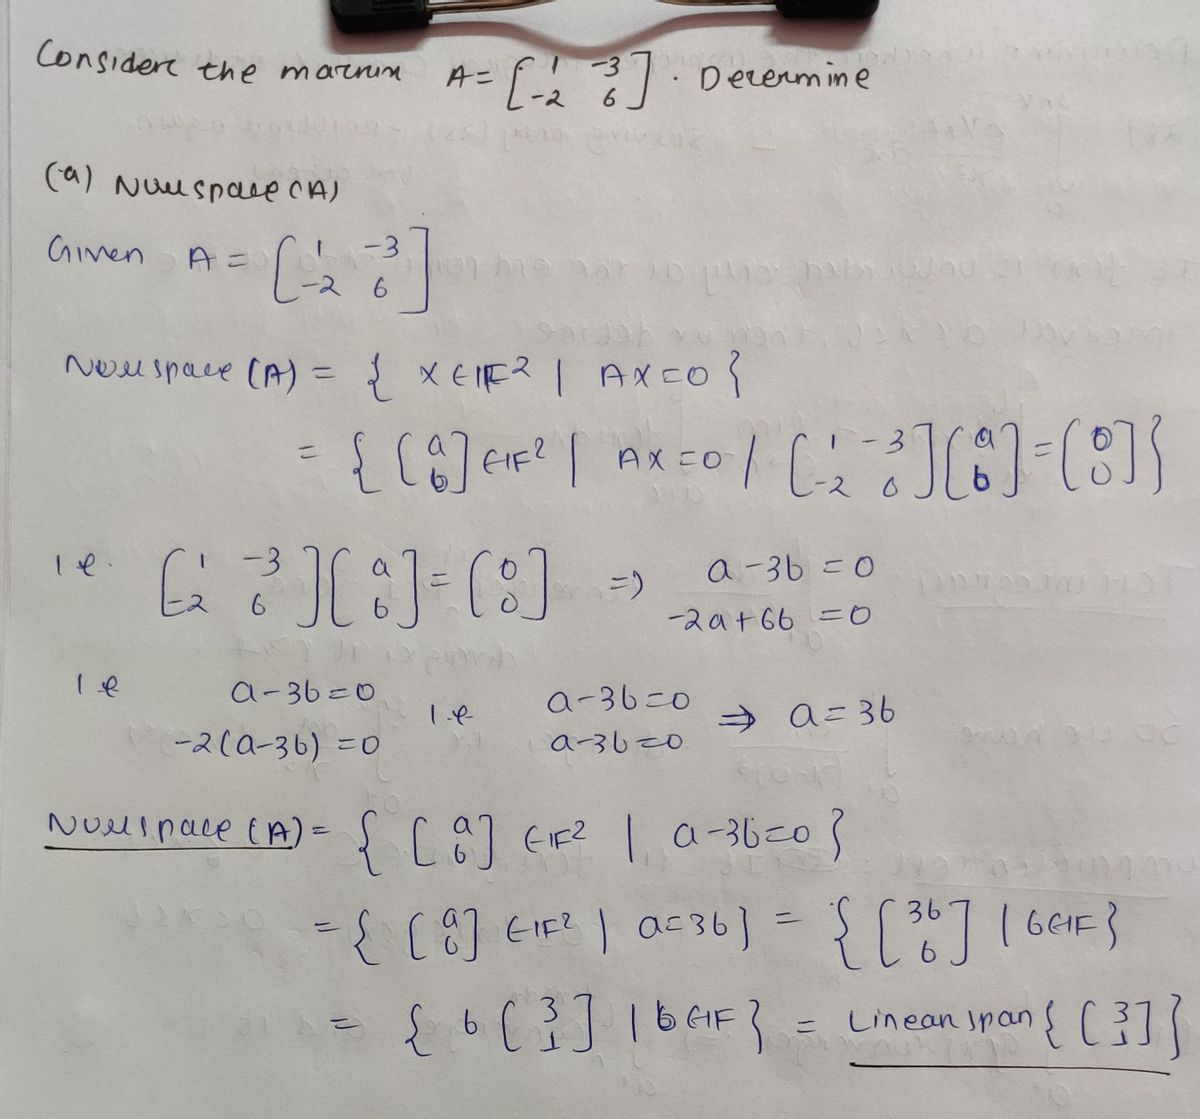 Consider the matrix A = [1 -3; -2 6]. Determine
(a) Nullspace (A)
Given A = [1 -3; -2 6]
Nullspace (A) = { X ∈ IF² | AX = 0 }
= { [a; b] ∈ IF² | AX = 0 / [1 -3; -2 6] [a; b] = [0; 0] }
i.e. [1 -3; -2 6] [a; b] = [0; 0] => a - 3b = 0
-2a + 6b = 0
i.e a - 3b = 0 i.e a - 3b = 0 => a = 3b
-2(a - 3b) = 0 a - 3b = 0
Nullspace (A) = { [a; b] ∈ IF² | a - 3b = 0 }
= { [a; b] ∈ IF² | a = 3b } = { [3b; b] | b ∈ IF }
= { b [3; 1] | b ∈ IF } = Linear span { [3; 1] }